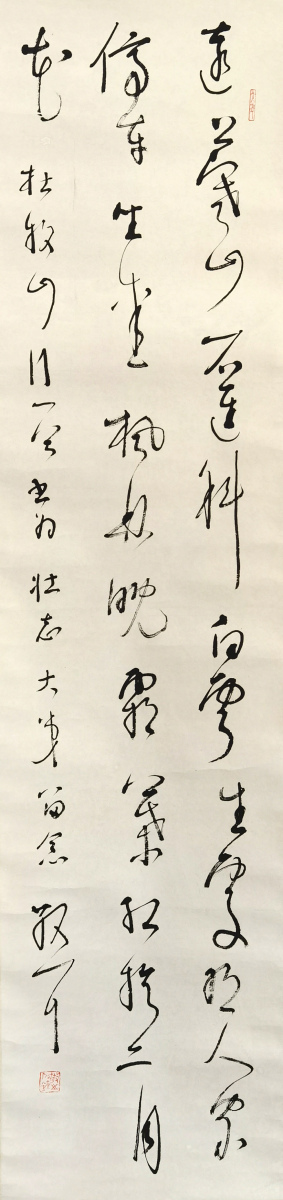 遠上寒山石逕斜白雲生處有人家
停車坐愛楓林晚霜葉紅於二月
花 杜牧山行一首 書為 壯志大弟留念 敬一